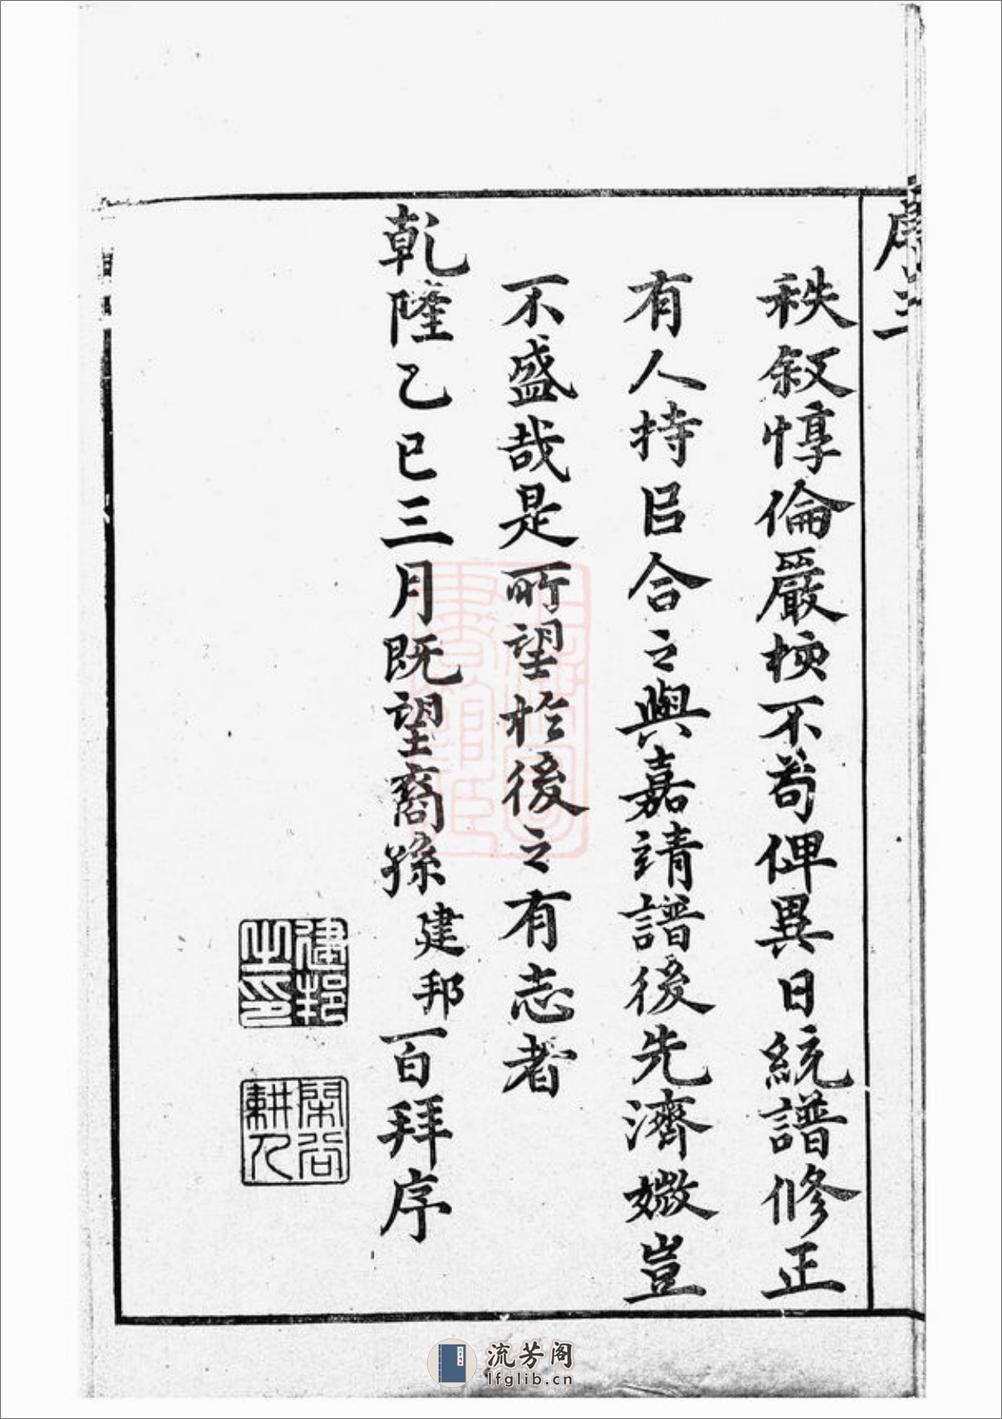 秩叙惇倫嚴核不苟俾異日統譜修正
有人持㠯合之與嘉靖譜後先濟媺豈
不盛哉是所望於後之有志者
乾隆乙巳三月既望裔孫建邦百拜序
建邦之印
耕人
流芳阁
lfglib.cn